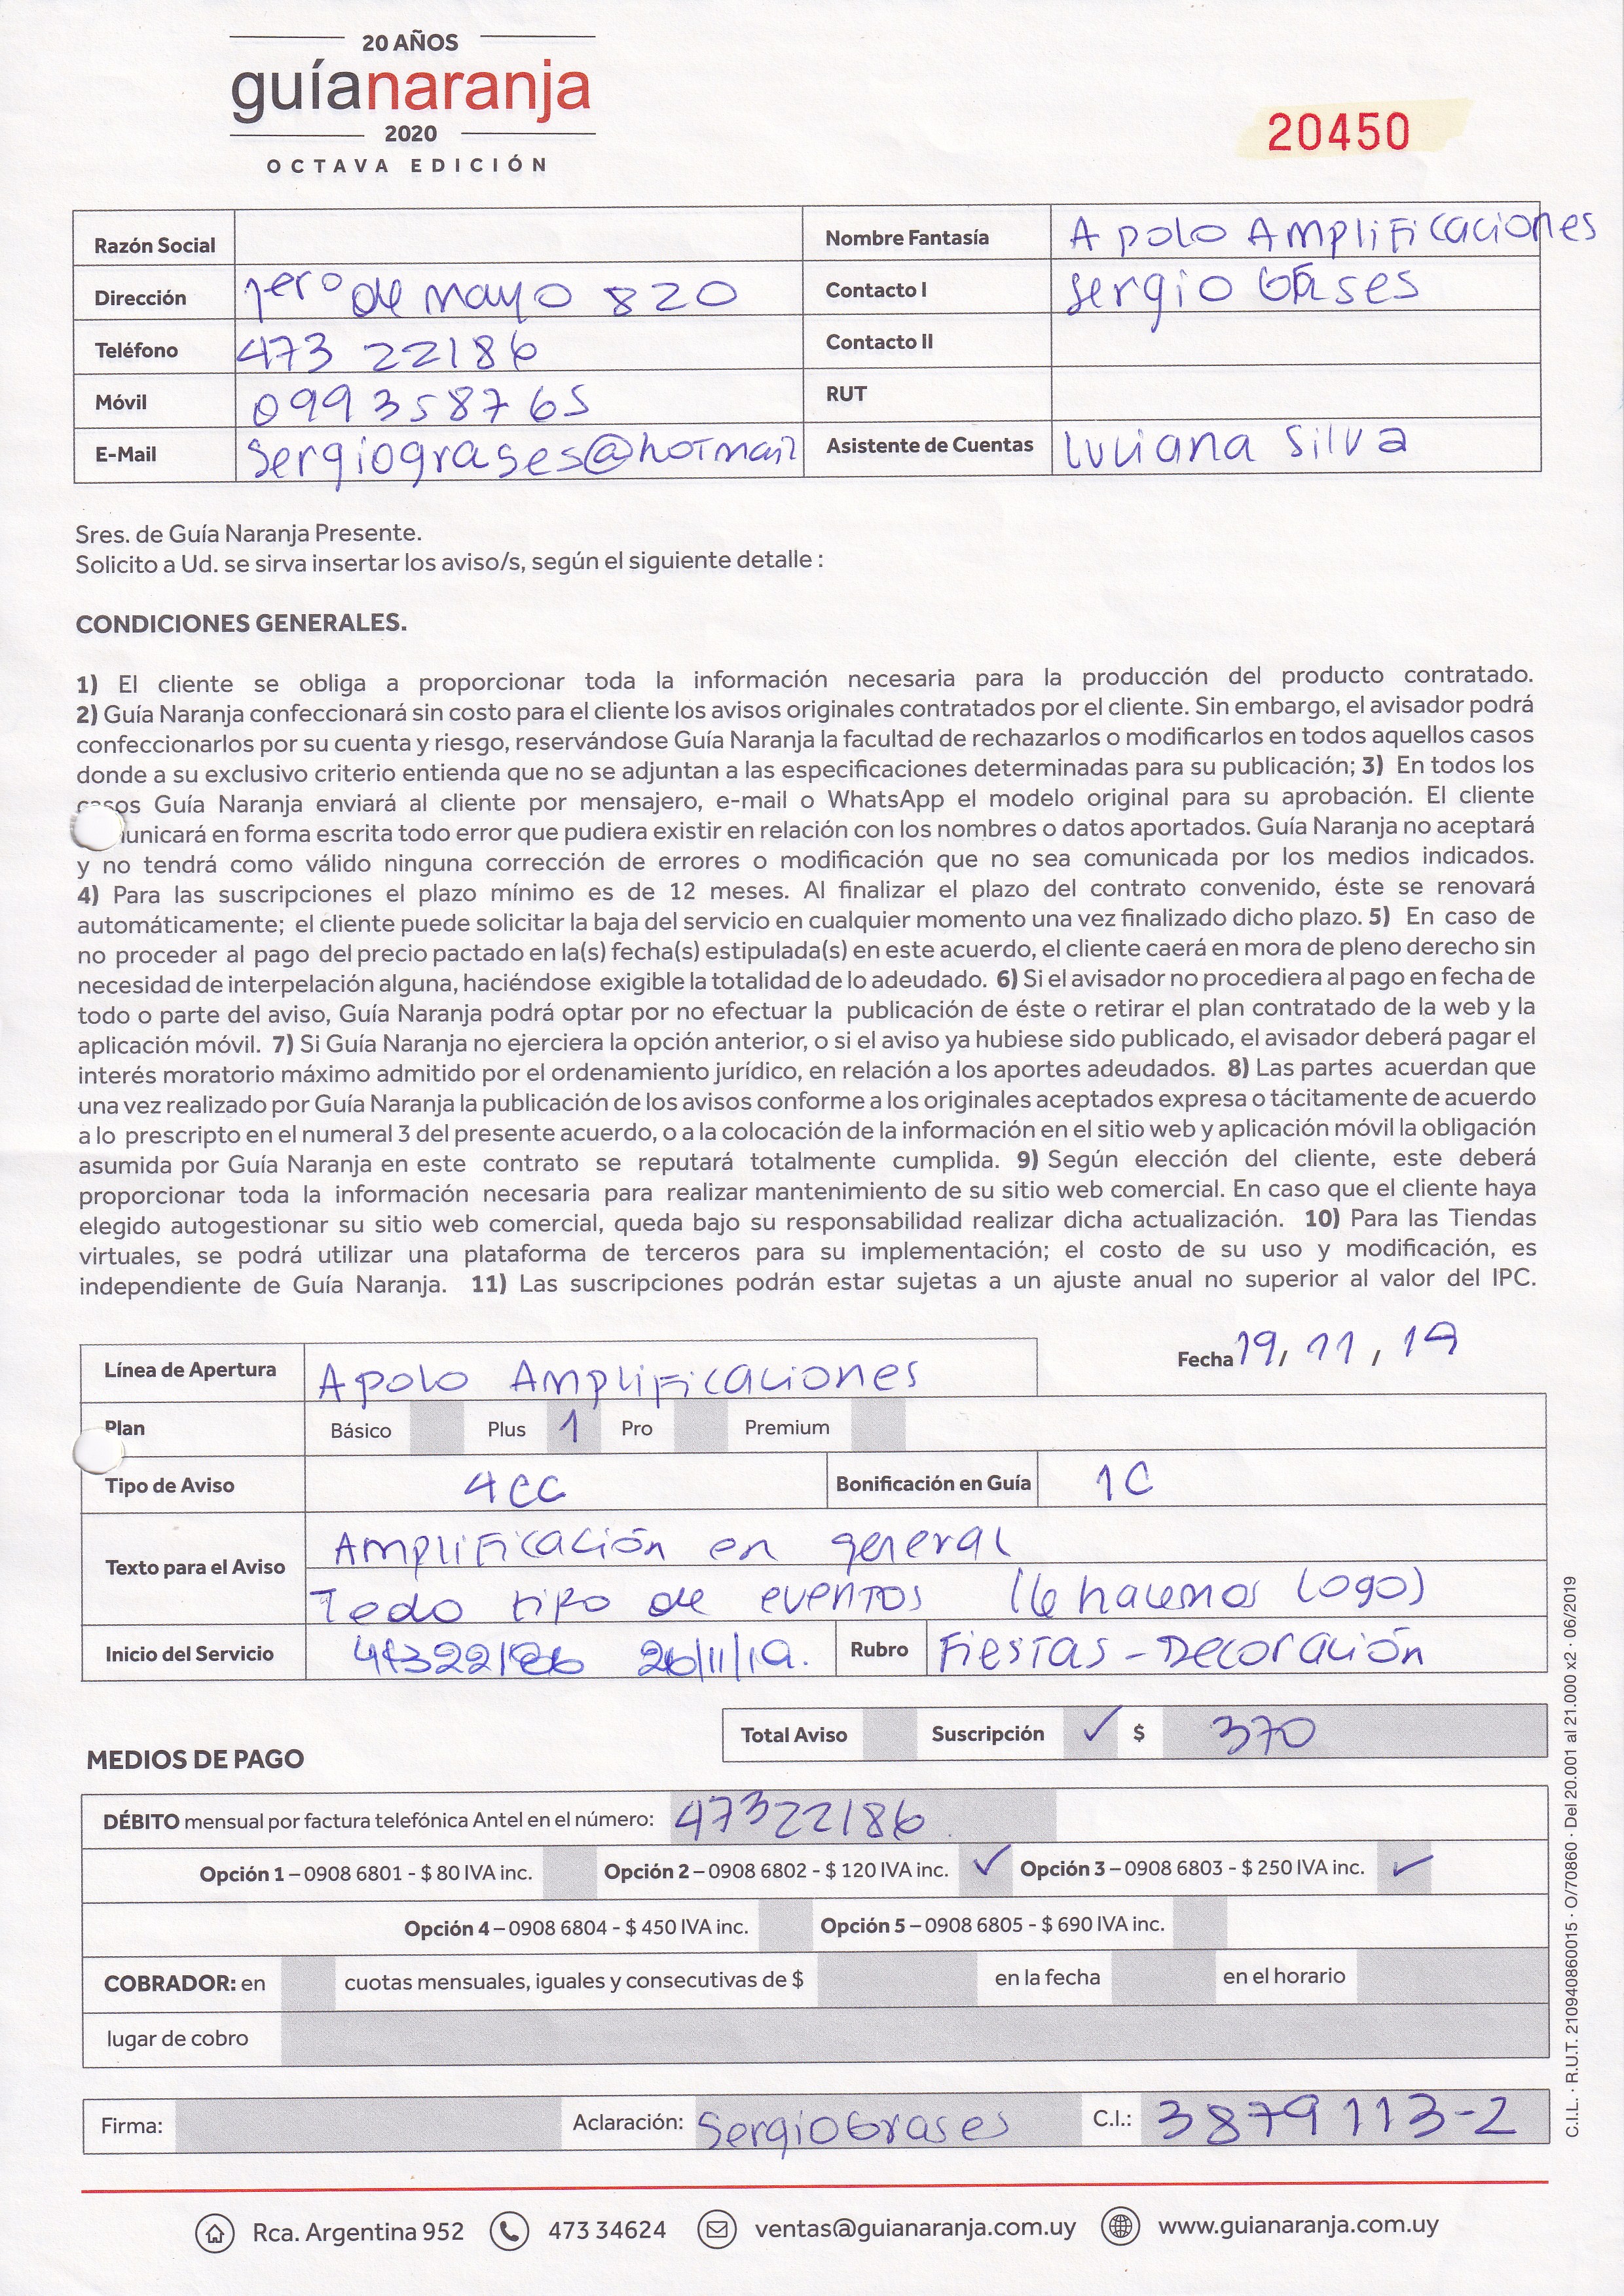 20 AÑOS
guíanaranja
2020
OCTAVA EDICIÓN
20450
Razón Social
Nombre Fantasía Apolo Amplificaciones
Dirección 1erº de mayo 820
Contacto I Sergio Grases
Teléfono 473 22186
Contacto II
Móvil 099358765
RUT
E-Mail sergiograses@hotmail
Asistente de Cuentas Luciana Silva
Sres. de Guía Naranja Presente.
Solicito a Ud. se sirva insertar los aviso/s, según el siguiente detalle :
CONDICIONES GENERALES.
1) El cliente se obliga a proporcionar toda la información necesaria para la producción del producto contratado.
2) Guía Naranja confeccionará sin costo para el cliente los avisos originales contratados por el cliente. Sin embargo, el avisador podrá
confeccionarlos por su cuenta y riesgo, reservándose Guía Naranja la facultad de rechazarlos o modificarlos en todos aquellos casos
donde a su exclusivo criterio entienda que no se adjuntan a las especificaciones determinadas para su publicación; 3) En todos los
casos Guía Naranja enviará al cliente por mensajero, e-mail o WhatsApp el modelo original para su aprobación. El cliente
unicará en forma escrita todo error que pudiera existir en relación con los nombres o datos aportados. Guía Naranja no aceptará
y no tendrá como válido ninguna corrección de errores o modificación que no sea comunicada por los medios indicados.
4) Para las suscripciones el plazo mínimo es de 12 meses. Al finalizar el plazo del contrato convenido, éste se renovará
automáticamente; el cliente puede solicitar la baja del servicio en cualquier momento una vez finalizado dicho plazo. 5) En caso de
no proceder al pago del precio pactado en la(s) fecha(s) estipulada(s) en este acuerdo, el cliente caerá en mora de pleno derecho sin
necesidad de interpelación alguna, haciéndose exigible la totalidad de lo adeudado. 6) Si el avisador no procediera al pago en fecha de
todo o parte del aviso, Guía Naranja podrá optar por no efectuar la publicación de éste o retirar el plan contratado de la web y la
aplicación móvil. 7) Si Guía Naranja no ejerciera la opción anterior, o si el aviso ya hubiese sido publicado, el avisador deberá pagar el
interés moratorio máximo admitido por el ordenamiento jurídico, en relación a los aportes adeudados. 8) Las partes acuerdan que
una vez realizado por Guía Naranja la publicación de los avisos conforme a los originales aceptados expresa o tácitamente de acuerdo
a lo prescripto en el numeral 3 del presente acuerdo, o a la colocación de la información en el sitio web y aplicación móvil la obligación
asumida por Guía Naranja en este contrato se reputará totalmente cumplida. 9) Según elección del cliente, este deberá
proporcionar toda la información necesaria para realizar mantenimiento de su sitio web comercial. En caso que el cliente haya
elegido autogestionar su sitio web comercial, queda bajo su responsabilidad realizar dicha actualización. 10) Para las Tiendas
virtuales, se podrá utilizar una plataforma de terceros para su implementación; el costo de su uso y modificación, es
independiente de Guía Naranja. 11) Las suscripciones podrán estar sujetas a un ajuste anual no superior al valor del IPC.
Línea de Apertura Apolo Amplificaciones
Fecha 19/ 11 / 19
Plan Básico Plus 1 Pro Premium
Tipo de Aviso 4cc Bonificación en Guía 1C
Texto para el Aviso Amplificación en general
Todo tipo de eventos (le hacemos logo)
Inicio del Servicio 47322186 26/11/19. Rubro Fiestas - Decoración
Total Aviso Suscripción ✓ $ 370
MEDIOS DE PAGO
DÉBITO mensual por factura telefónica Antel en el número: 47322186
Opción 1 – 0908 6801 - $ 80 IVA inc. Opción 2 – 0908 6802 - $ 120 IVA inc. ✓ Opción 3 – 0908 6803 - $ 250 IVA inc. ✓
Opción 4 – 0908 6804 - $ 450 IVA inc. Opción 5 – 0908 6805 - $ 690 IVA inc.
COBRADOR: en cuotas mensuales, iguales y consecutivas de $ en la fecha en el horario
lugar de cobro
Firma: Aclaración: Sergio Grases C.I.: 3879113-2
Rca. Argentina 952 473 34624 ventas@guianaranja.com.uy www.guianaranja.com.uy
C.I.L. · R.U.T. 210940860015 · O/70860 · Del 20.001 al 21.000 x2 · 06/2019